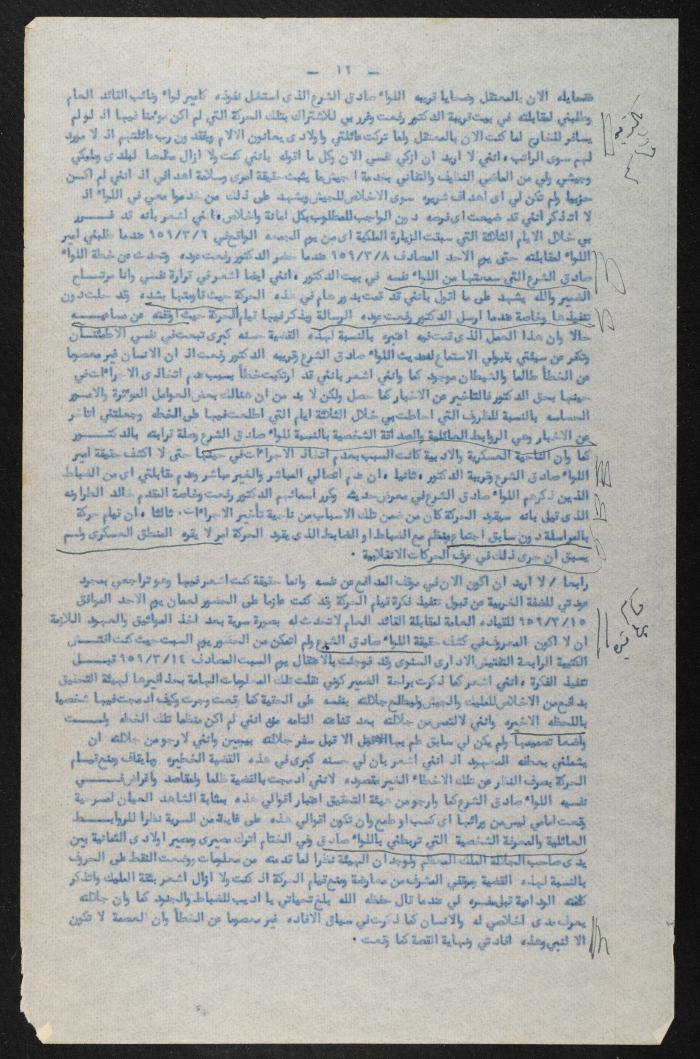 – ١٢ –
ضحاياه الان بالمعتقل وضحايا قريبه اللواء صادق الشرع الذي استغل نفوذه كامير لواء ونائب القائد العام
وطلبني لمقابلته في بيت قريبة الدكتور رفعت وغرر بي للاشتراك بتلك الحركة التي لم اكن مؤمنا فيها اذ لو لم
يسافر للخارج لما كنت الان بالمعتقل ولما تركت عائلتي واولادي يعانون الالام ويفقدون رب عائلتهم اذ لا مورد
لهم سوى الراتب ٠ انني لا اريد ان ازكي نفسي الان وكل ما اقوله بانني كنت ولا ازال مخلصا لبلدي ومليكي
وجيشي ولي من الماضي النظيف والتفاني بخدمة الجيش ما يثبت حقيقة امري وسلامة اهدافي اذ انني لم اكن
حزبيا ولم تكن لي اي اهداف شريره سوى الاخلاص للجيش ويشهد على ذلك من خدموا معي في اللواء اذ
لا اتذكر انني قد ضيعت اي فرصه دون الواجب المطلوب بكل امانة واخلاص ٠ انني اشعر بانه قد غرر
بي خلال الايام الثلاثة التي سبقت الزيارة الملكية اي من يوم الجمعه الواقع في ١٥٩/٣/٦ عندما طلبني امير
اللواء لمقابلته حتى يوم الاحد المصادف ١٥٩/٣/٨ عندما حضر الدكتور رفعت عوده وتحدث عن خطة اللواء
صادق الشرع التي سمعتها من اللواء نفسه في بيت الدكتور ٠ انني ايضا اشعر في قرارة نفسي وانا مرتاح
الضمير والله يشهد على ما اقول بانني قد قمت بدور هام في هذه الحركة حيث قاومتها بشده وقد حلت دون
تنفيذها وخاصة عندما ارسل الدكتور رفعت عوده الرسالة ويذكر فيها قيام الحركة حيث اوقفته عن مساعيه
حالا وان هذا العمل الذي قمت فيه اعتبره بالنسبة لهذه القضية حسنه كبرى تبعث في نفسي الاطمئنان
وتكفر عن سيئتي بقبولي الاستماع لحديث اللواء صادق الشرع وقريبه الدكتور رفعت اذ ان الانسان غير معصوما
عن الخطأ طالما والشيطان موجود كما وانني اشعر بانني قد ارتكبت خطأ بسبب عدم اتخاذي الاجراءات في
حينها بحق الدكتور فالتأخير عن الاخبار كما حصل ولكن لا بد من ان هنالك بعض العوامل المؤثرة والامور
الحساسه بالنسبة للظروف التي احاطت بي خلال الثلاثة ايام التي اطلعت فيها على الخطه وجعلتني اتأخر
عن الاخبار وهي الروابط العائلية والصداقة الشخصية بالنسبة للواء صادق الشرع وصلة قرابته بالدكتور
كما وان الناحية العسكرية والادبية كانت السبب بعدم اتخاذ الاجراءات في حينها حتى لا اكشف حقيقة امير
اللواء صادق الشرع وقريبة الدكتور ٠ ثانيا ٠ ان عدم اتصالي المباشر والغير مباشر وعدم مقابلتي اي من الضباط
الذين ذكرهم اللواء صادق الشرع في معرض حديثه وكرر اسمائهم الدكتور رفعت وخاصة المقدم خالد الطراونه
الذي قيل بانه سيقود الحركة كان من ضمن تلك الاسباب من ناحية تأخير الاجراءات ٠ ثالثا ٠ ان قيام حركة
بالمراسلة دون سابق اجتماع منظم مع الضباط او الضابط الذي يقود الحركة امر لا يقره المنطق العسكري ولم
يسبق ان جرى ذلك في عرف الحركات الانقلابية ٠
رابعا / لا اريد ان اكون الان في موقف المدافع عن نفسه وانما حقيقة كنت اشعر فيها وهو تراجعي بمجرد
عودتي للضفة الغربية عن قبول تنفيذ فكرة قيام الحركة وقد كنت عازما على الحضور لعمان يوم الاحد الموافق
١٥٩/٣/١٥ للقيادة العامة لمقابلة القائد العام لاتحدث له بصورة سرية بعد اخذ المواثيق والعهود اللازمة
ان لا اكون المعروف في كشف حقيقة اللواء صادق الشرع ولم اتمكن من الحضور يوم السبت حيث كنت افتش
الكتيبة الرابعة التفتيش الاداري السنوي وقد فوجئت بالاعتقال يوم السبت المصادف ١٥٩/٣/١٤ قبل
تنفيذ الفكرة ٠ انني اشعر كما ذكرت براحة الضمير كوني نقلت تلك المعلومات الهامة بحذافيرها لهيئة التحقيق
بدافع من الاخلاص للمليك والجيش وليطلع جلالته بنفسه على الحقيقة كما وقعت وجرت وكيف ادمجت فيها شخصيا
باللحظه الاخيره وانني لالتمس من جلالته بعد قناعته التامه مني انني لم اكن منظما تلك الخطه ولست
واضعا تصميمها ولم يكن لي سابق علم بها الا قبل سفر جلالته بيومين وانني لارجو من جلالته ان
يشملني بعطفه المعهود اذ انني اشعر بان لي حسنه كبرى في هذه القضية الخطيره وبايقاف ومنع قيام
الحركة بصرف النظر عن تلك الاخطاء الغير مقصوده لانني ادمجت بالقضية ظلما ولمقاصد واغراض في
نفسية اللواء صادق الشرع كما وارجو من هيئة التحقيق اعتبار اقوالي هذه بمثابة الشاهد العيان لمسرحية
وقعت امامي ليس من ورائها اي كسب او طمع وان تكون اقوالي هذه على قاعدة من السرية نظرا للروابط
العائلية والمعرفة الشخصية التي تربطني باللواء صادق وفي الختام اترك مصيري ومصير اولادي الثمانية بين
يدي صاحب الجلالة الملك المعظم ولوجدان الهيئة نظرا لما قدمته من معلومات ووضعت النقط على الحروف
بالنسبة لهذه القضية وموقفي المشرف من معارضة ومنع قيام الحركة اذ كنت ولا ازال اشعر بثقة المليك واتذكر
كلمته الوداعية قبل سفره لي عندما قال حفظه الله بلغ تحياتي يا اديب للضباط والجنود كما وان جلالته
يعرف مدى اخلاصي له والانسان كما ذكرت في سياق الافاده غير معصوما عن الخطأ وان العصمة لا تكون
الا لنبي وهذه افادتي ونهاية القصة كما وقعت ٠